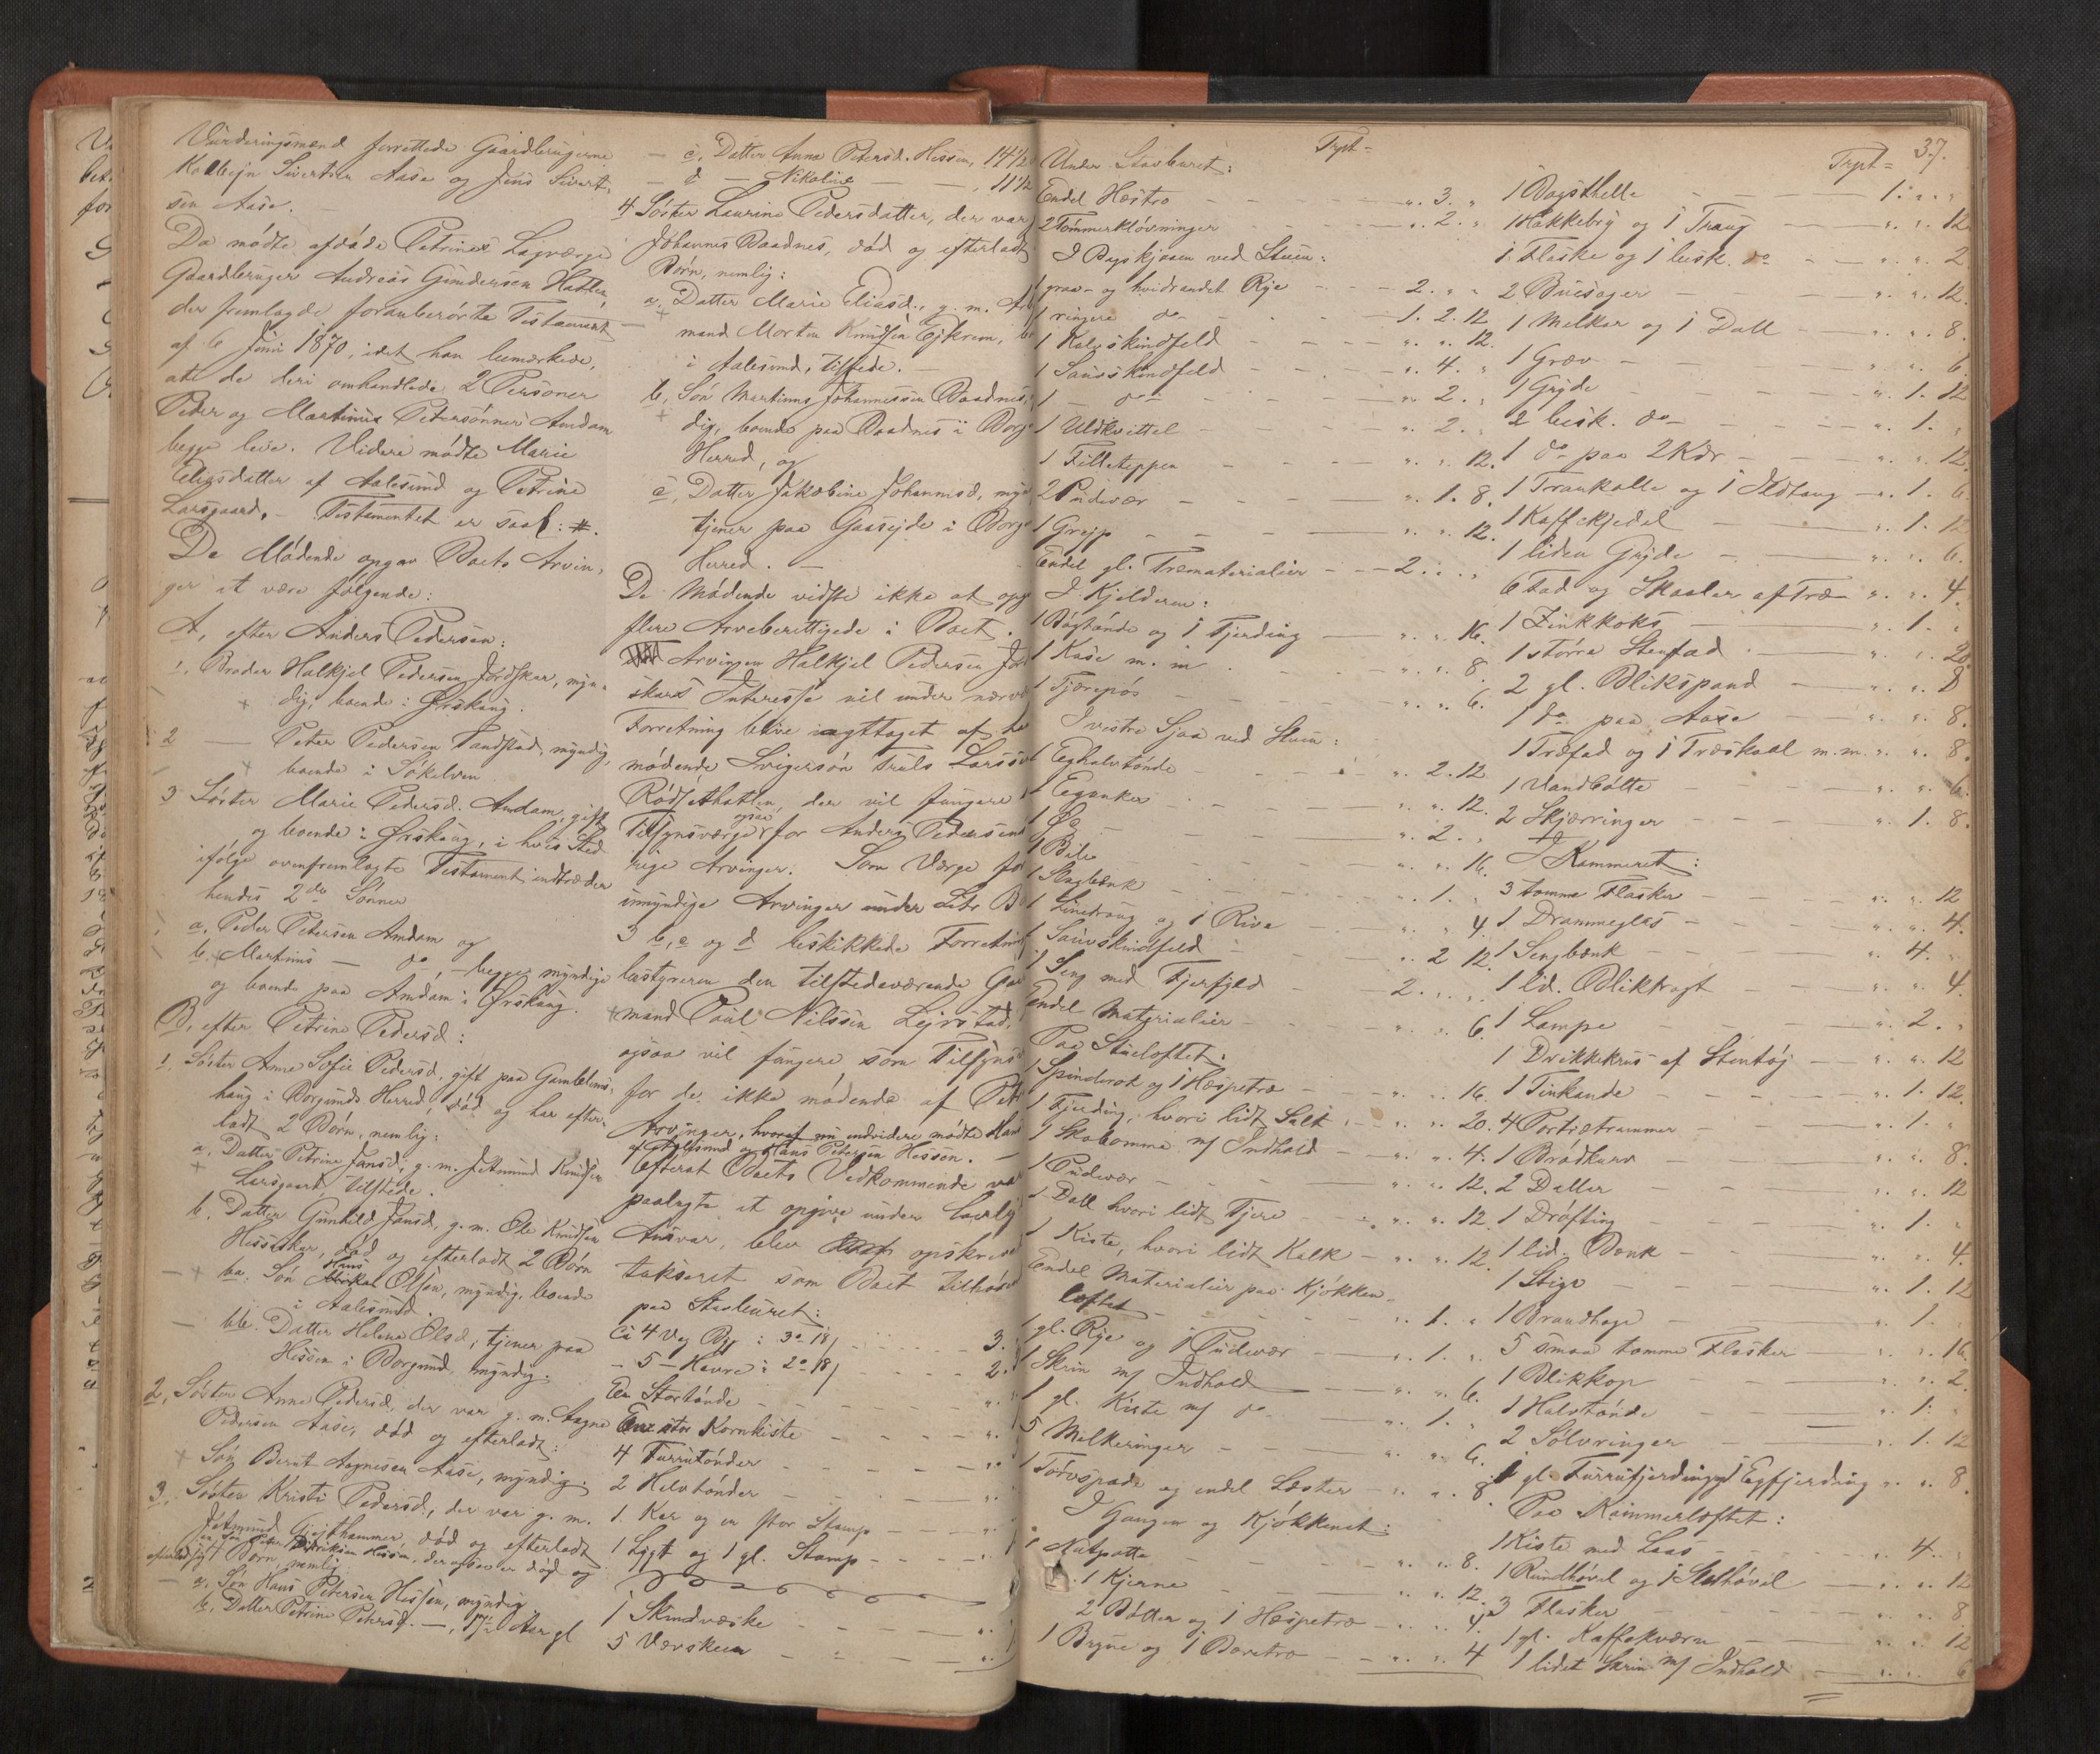 Vurderingsmænd forrettede Gaardbrugerne
Kolbejn Sivertsen Aase og Jens Sivert-
sen Aase.
Da mödte afdöde Petrines Lagværge
Gaardbruger Andreas Gundersen Hatlen,
der fremlagde foranberörte Testament
af 6 Juni 1870, idet han bemærkede,
at de deri omhandlede 2 Personer
Peder og Martinus Petersönner Amdam
begge leve. Videre mödte Marie
Eliasdatter af Aalesund og Petrine
Larsgaard. – Testamentet er saal: #.
De Mödende opgav Boets Arvin-
ger at være fölgende:
A, efter Anders Pedersen:
1, Broder Halkjel Pedersen Jordskar, myn-
dig, boende i Örskoug.
2 — Peter Pedersen Tandstad, myndig,
boende i Sökelven
3 Söster Marie Pedersd. Amdam, gift
og boende i Örskoug, i hvis Sted
ifölge ovenfremlagte Testament indtræder
hendes 2de Sönner
a, Peder Petersen Amdam og
b, Martinus — do, – begge myndige
og boende paa Amdam i Örskoug.
B, efter Petrine Pedersd:
1, Söster Anne Sofie Pedersd, gift paa Gamlems-
haug i Borgunds Herred, död og har efter-
ladt 2 Börn, nemlig:
a, Datter Petrine Jansd, g. m. Jetmund Knudsen
Larsgaard, tilstede.
b, Datter Gunhild Jansd, g. m. Ole Knudsen
Hesseskar, död og efterladt 2 Börn
ba, Sön Hans Olsen, myndig, boende
i Aalesund.
bb. Datter Helene Olsd, tjener paa
Hessen i Borgund, myndig.
2, Söster Anne Pedersd, der var g. m. Aagne
Pedersen Aase, död og efterladt:
Sön Bernt Aagnesen Aase, myndig.
3, Söster Kristi Pedersd, der var g. m.
Jetmund död og efterladt
Hessen, der ogsaa er död og
efterladt Börn, nemlig
a, Sön Hans Petersen Hessen, myndig
b, Datter Petrine Petersd. —, 17½ Aar gl
— c, Datter Anne Petersd. Hessen, 14½
— d — Nikoline — — , 11½
4 Söster Laurine Pedersdatter, der var
Johannes Baadnes, död og efterladt
Börn, nemlig:
a, Datter Marie Eliasd., g. m. Ar
mand Morten Knudsen Ejkrem, bo
i Aalesund, tilstede. —
b, Sön Martinus Johannessen Baadnes,
dig, boende paa Baadnes i Borg
Herred, og
c, Datter Jakobine Johannesd, myn
tjener paa Gaasejde i Borg
Herred. —
De Mödende vidste ikke at opg
flere Arveberettigede i Boet.
Arvingen Halkjel Pedersen Jor
skars Interesse vil under nærvæ
Forretning blive iagttaget af he
mödende Svigersön Truls Larss
Rödsethatlen, der vil fungere
Tilsynsværge ogsaa for Anders Pedersens
rige Arvinger. Som Værge for
umyndige Arvinger under Litr B
3 b, c og d beskikkede Forretnin
bestyreren den tilstedeværende Gaa
mand Poul Nilssen Lejrstad,
ogsaa vil fungere som Tilsyns
for de ikke mödende af Pet
Arvinger, hvoraf nu endvidere mödte Hans
af Aalesund og Hans Petersen Hessen. —
Efterat Boets Vedkommende var
paalagte at opgive under Lovlig
Ansvar, blev opskrevet
takseret som Boet tilhöre
paa Stabburet:
Ci 4 Vog Byg i 3o 18/ 3.
– 5 – Havre i 2o 18/ 2.
En Stortönde
En stor Kornkiste
4 Furrutönder
2 Halvtönder
1. Kar og en stor Stamp
1 Lygt og 1 gl. Stamp
1 Skindvæske
5 Værskeen
37.
Under Stavburet: Trpt=
Endel Hæstro .. 3. "
2 Tömmerklövninger .. 2. "
I Bagskjaaen ved Stuen:
1 graa- og hvidrandet Rye 2. " "
1 ringere do 1. 2. 12
1 Kalvskindfeld " " 12.
1 Sauskindfeld " 4. "
1 — do " 2. "
1 Uldkvittel " 2. "
1 Filleteppen " " 12.
2 Pudevær " 1. 8.
1 Grejp " " 12.
Endel gl. Træmaterialier 2. " "
I Kjelderen:
1 Bögtönde og 1 Fjerding " " 16.
1 Kase m. m. " " 8
1 Tjærepös " " 6.
I vestre Sjaa ved Stuen:
1 Eghalvtönde " 2. 12
1 Eganker " " 12.
1 do " 2. "
1 Bile " " 16.
1 Slagbænk " 1. "
1 Linetroug og 1 Rive " " 4
1 Sauskindfeld " 2 12.
1 Seng med Fjerfjæld 2. " "
Endel Materialier " " 6.
Paa Stueloftet:
1 Spinderok og 1 Hæspetræ " " 16.
1 Fjerding, hvori lidt Salt " " 20.
1 Skobomme m/ Indhold " " 4.
1 Pudevær " " 12.
1 Dall hvori lidt Tjere " " 12.
1 Kiste, hvori lidt Kalk " " 12.
Endel Materialier paa Kjökken-
loftet " 1. "
1 gl. Rye og 1 Pudevær " 1. "
1 Skrin m/ Indhold " " 6.
1 gl. Kiste m/ do " 1. "
5 Melkeringer " " 6.
1 Torvspade og endel Læster " " 8
I Gangen og Kjökkenet:
1 Natpotte " " 8.
1 Kjerne " " 12.
2 Bötter og 1 Hæspetræ " " 4.
1 Bryne og 1 Bæretræ " " 4
Trpt=
1 Bagsthelle 1. " "
1 Hakkebry og 1 Traug " " 12
1 Flaske og 1 besk. do " " 2
2 Buesager " " 12.
1 Melkar og 1 Dall " " 8.
1 Grev " " 6
1 Gryde " 1. 12
2 besk. do " 1. "
1 do paa 2 Kdr " " 12.
1 Trankolle og 1 Ildtang " 1. 6.
1 Kaffekjedel " 1. 12
1 liden Gryde " " 6.
6 Fad og Skaaler af Træ " " 4.
1 Zinkkoks " 1. "
1 större Stenfad " " 20
2 gl. Blikspand " " 8
1 do paa Aase " " 8.
1 Træfad og 1 Træskaal m. m. " " 8.
1 Vandbötte " " 6.
2 Skjærringer " 1. 8.
I Kammeret:
3 tomme Flasker " " 12
1 Drammeglas " " 4.
1 Sengbænk " 4. "
1 lid. Bliktragt " " 4.
1 Lampe " 2. "
1 Drikkekrus af Stentöj " " 12
1 Tinkande " 1. 12.
4 Portrætrammer " 1. "
1 Brödkurv " " 8.
2 Daller " " 12
1 Dröfting " 1. "
1 lid. Benk " " 4.
1 Stige " 1. 12
1 Brandhage " 1. "
5 smaa tomme Flasker " " 16.
1 Blikkop " " 2.
1 Halvtönde " 1. "
2 Sölvringer " 1. 12
1 gl. Furrufjerding og 1 Egfjerding " " 8.
Paa Kammerloftet:
1 Kiste med Laas " 4. "
1 Rundhövel og 1 Sletthövel " " 12
3 Flasker " " 8
1 gl. Kaffekværn " " 12
1 lidet Skrin m/ Indhold " " 6